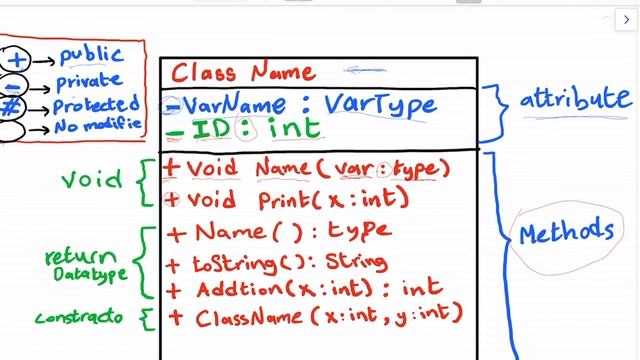 + → public
- → private
# → Protected
→ No modifie
Class Name
- VarName : VarType
- ID : int
attribute
void
+ void Name(var:type)
+ void Print(x:int)
return
Datatype
+ Name() : type
+ toString(): String
+ Addtion(x:int) : int
constracto
+ ClassName (x:int, y:int)
Methods